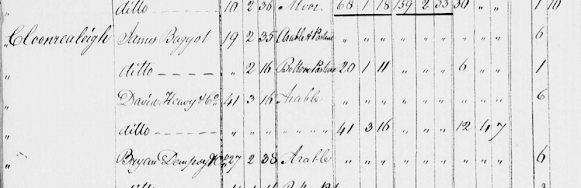 ditto 10 2 36 Moor 68 1 18 159 2 33 30 " " 1 10
" Cloonrealeigh James Baggot 19 2 35 Arable & Pasture " " " " " " " " " 6
" ditto " 2 16 Bottom Pasture 20 1 11 " " " 6 " 1
" David Henry & Co 41 3 16 Arable " " " " " " " " " 6
" ditto " " " " " " 41 3 16 " " " 12 4 7
" Bryan Dempsy & Co 27 2 38 Arable " " " " " " " " " 6
ditto